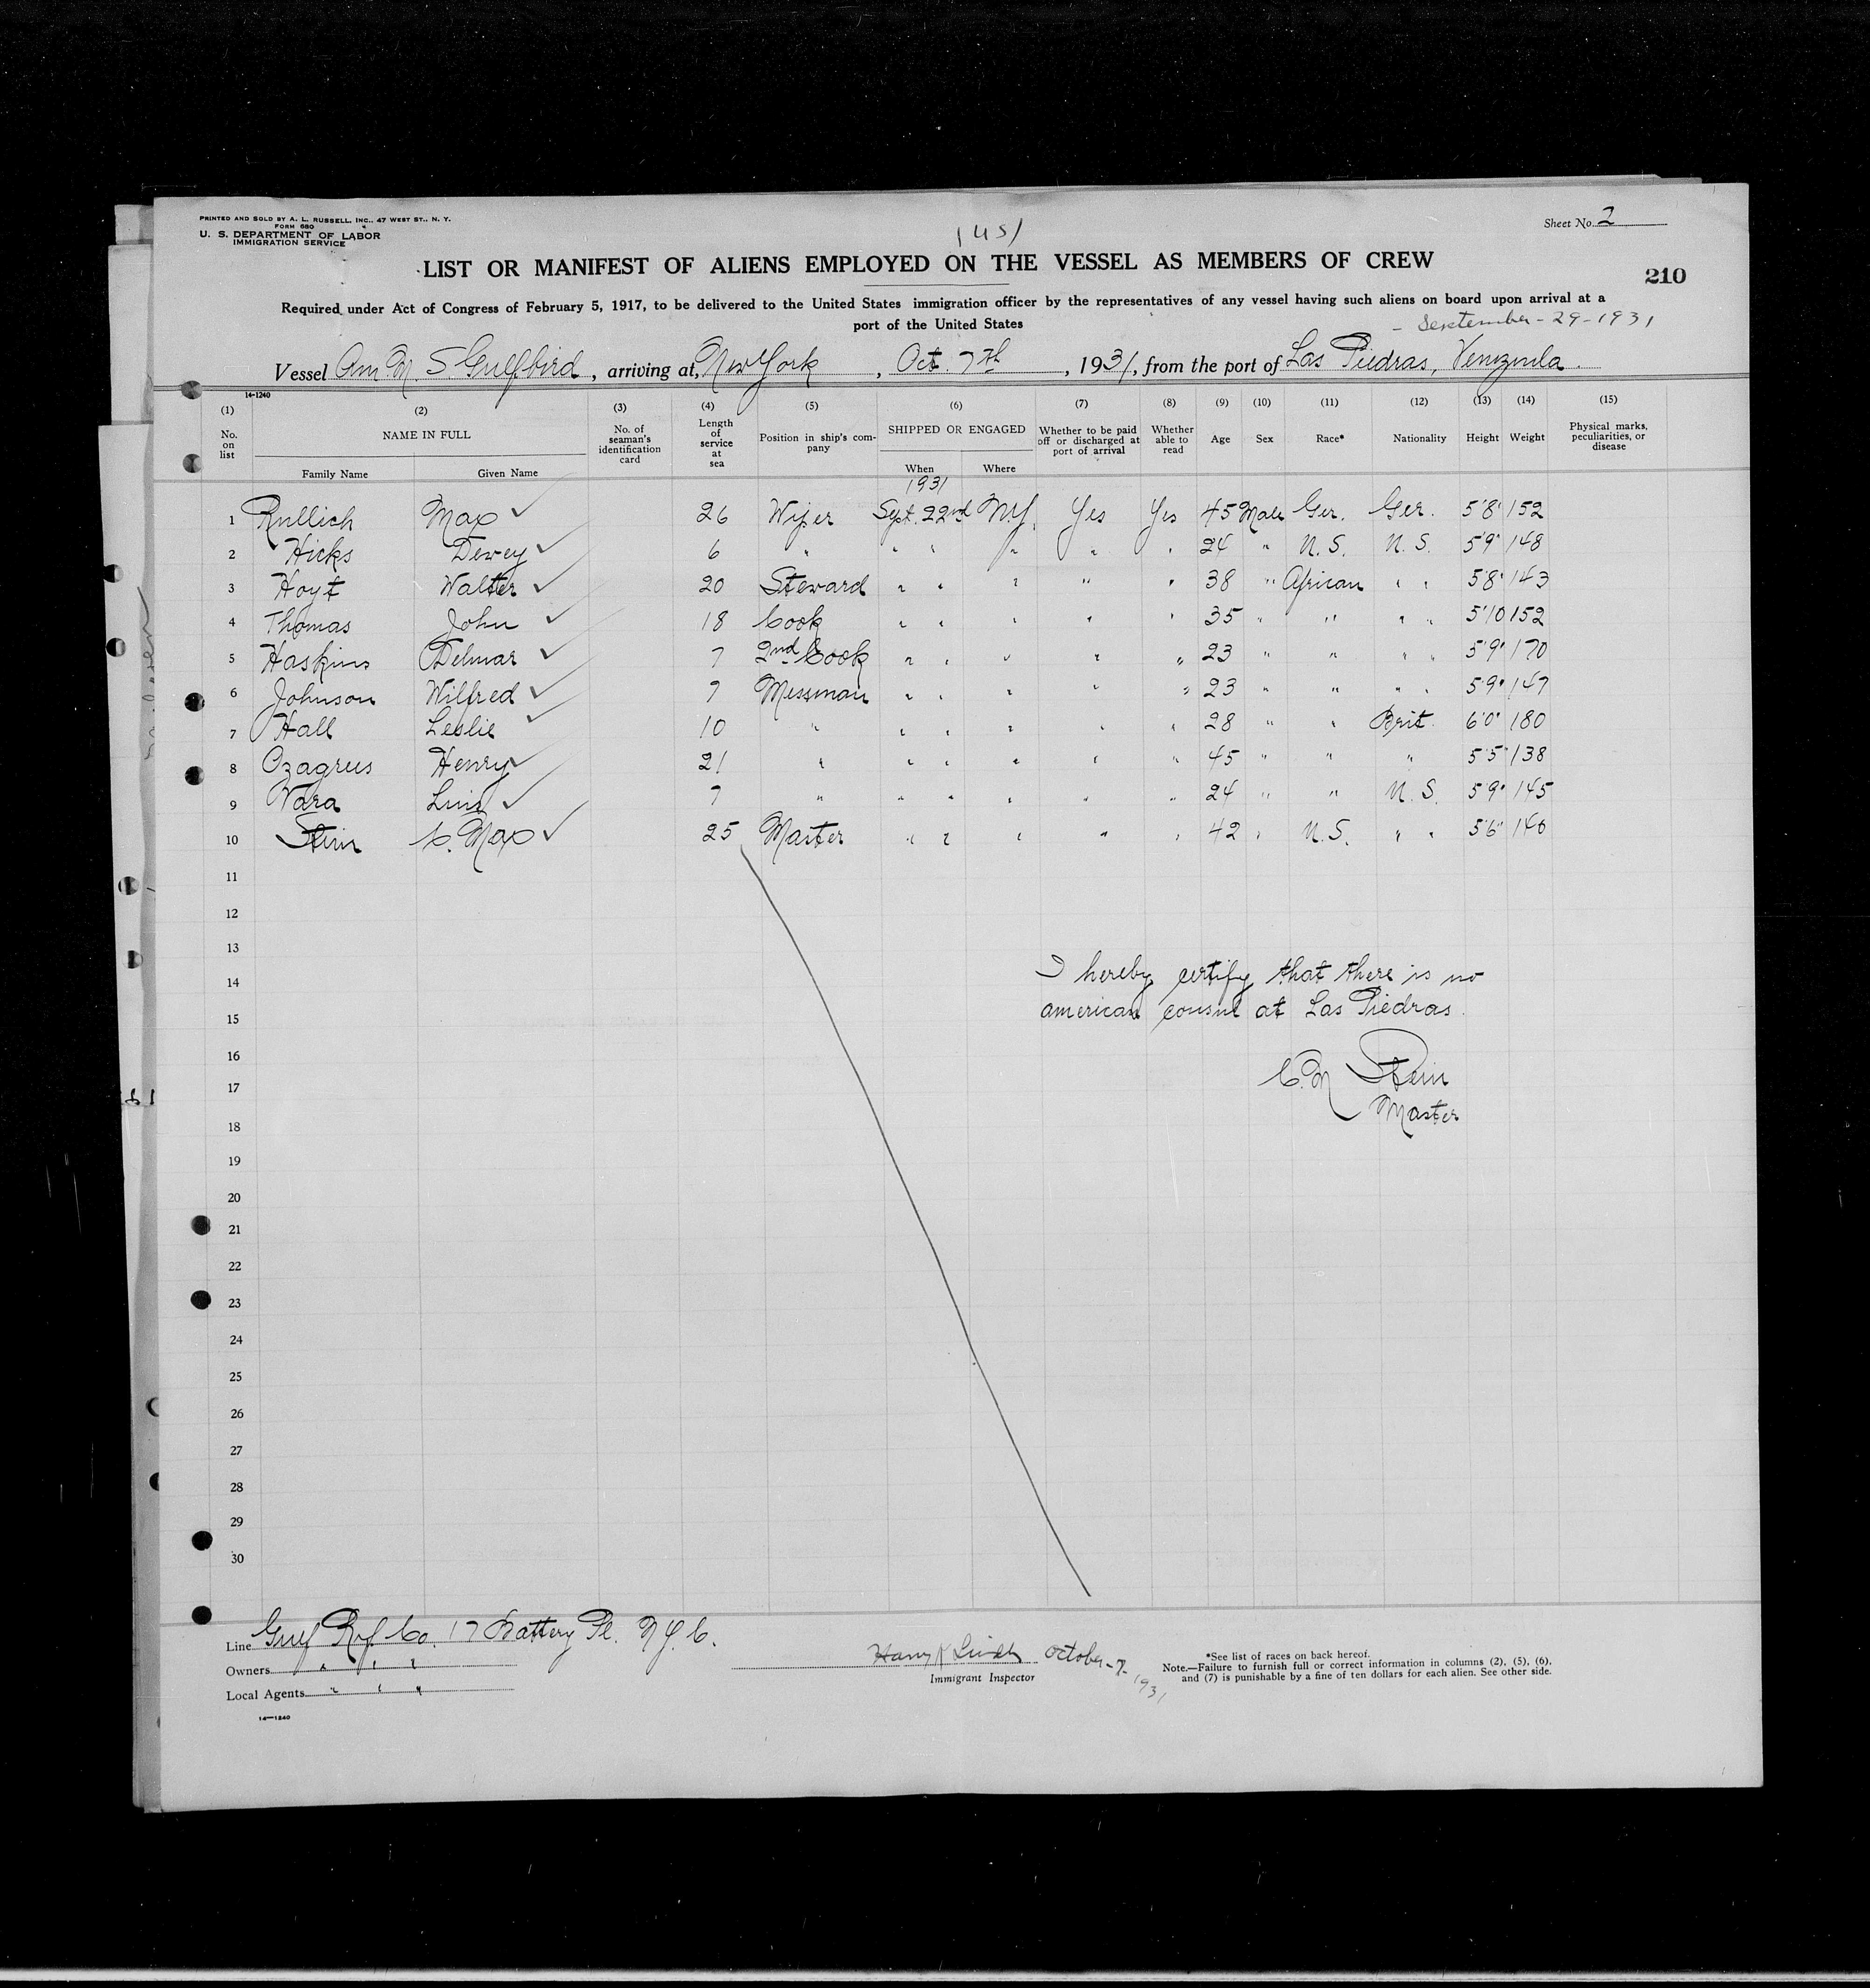 PRINTED AND SOLD BY A. L. RUSSELL, INC., 47 WEST ST., N. Y.
FORM 680
U. S. DEPARTMENT OF LABOR
IMMIGRATION SERVICE
(US)
Sheet No. 2
LIST OR MANIFEST OF ALIENS EMPLOYED ON THE VESSEL AS MEMBERS OF CREW
210
Required under Act of Congress of February 5, 1917, to be delivered to the United States immigration officer by the representatives of any vessel having such aliens on board upon arrival at a
port of the United States
- September - 29 - 1931
Vessel Am. M. S. Gulfbird, arriving at, New York, Oct. 7th, 1931, from the port of Las Piedras, Venezuela.
14-1240
(1) (2) (3) (4) (5) (6) (7) (8) (9) (10) (11) (12) (13) (14) (15)
No. on list NAME IN FULL No. of seaman's identification card Length of service at sea Position in ship's company SHIPPED OR ENGAGED Whether to be paid off or discharged at port of arrival Whether able to read Age Sex Race* Nationality Height Weight Physical marks, peculiarities, or disease
Family Name Given Name When Where
1931
1 Rullich Max ✓ 26 Wiper Sept. 22nd N.Y. Yes Yes 45 Male Ger. Ger. 5'8" 152
2 Hicks Dewey ✓ 6 " " " " " " 24 " U.S. U.S. 5'9" 148
3 Hoyt Walter ✓ 20 Steward " " " " " 38 " African " " 5'8" 143
4 Thomas John ✓ 18 Cook " " " " " 35 " " " " 5'10 152
5 Haskins Delmar ✓ 7 2nd Cook " " " " " 23 " " " " 5'9" 170
6 Johnson Wilfred ✓ 7 Messman " " " " " 23 " " " " 5'9" 147
7 Hall Leslie ✓ 10 " " " " " " 28 " " Brit. 6'0" 180
8 Ozagrus Henry ✓ 21 " " " " " " 45 " " " 5'5" 138
9 Vara Luis ✓ 7 " " " " " " 24 " " U.S. 5'9" 145
10 Stein C. Max ✓ 25 Master " " " " " 42 " U.S. " " 5'6" 140
11
12
13
I hereby certify that there is no
14
american consul at Las Piedras.
15
16
C. M Stein
17
Master
18
19
20
21
22
23
24
25
26
27
28
29
30
Line Gulf Ref. Co. 17 Battery Pl. N.Y.C.
Owners " " "
Local Agents " " "
October - 7 - 1931
Immigrant Inspector
*See list of races on back hereof.
Note.—Failure to furnish full or correct information in columns (2), (5), (6),
and (7) is punishable by a fine of ten dollars for each alien. See other side.
14—1240